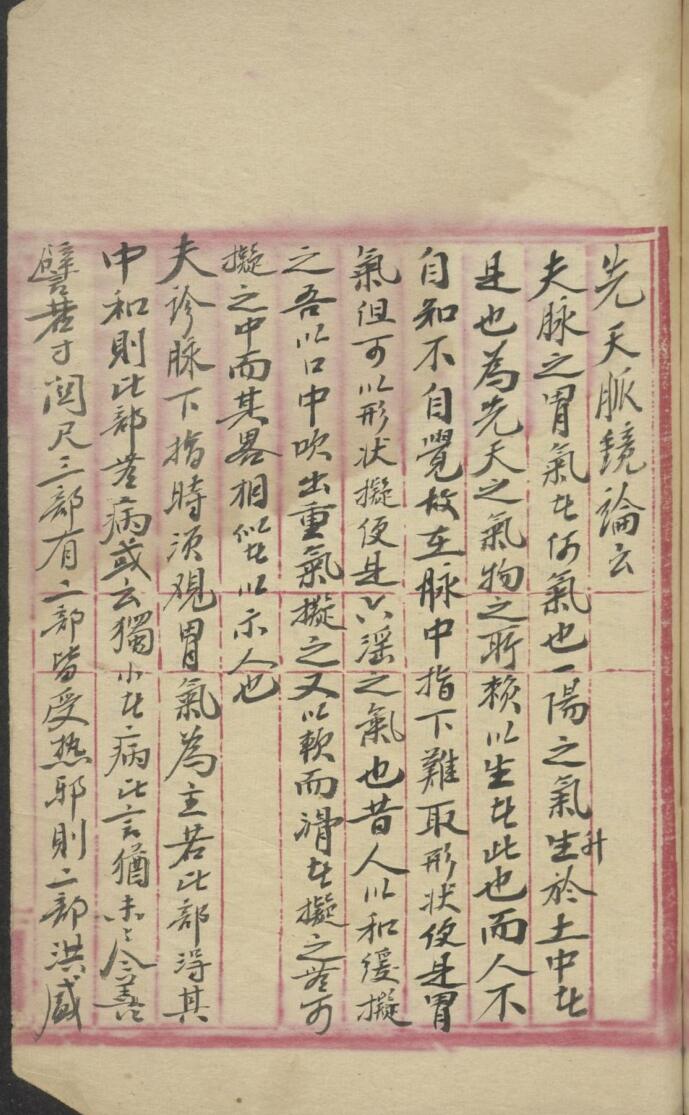 先天脈鏡論云
夫脉之胃氣者何氣也一陽之氣生升於土中者
是也為先天之氣物之所賴以生者此也而人不
自知不自覺故在脉中指下難取形状便是胃
氣但可以形状擬便是六淫之氣也昔人以和緩擬
之吾以口中吹出重氣擬之又以軟而滑者擬之無可
擬之中而其畧相似者以示人也
夫診脉下指時須觀胃氣為主若此部得其
中和則此部無病或云獨小者病此言猶未盡善
譬若寸関尺三部有二部皆受热邪則二部洪盛